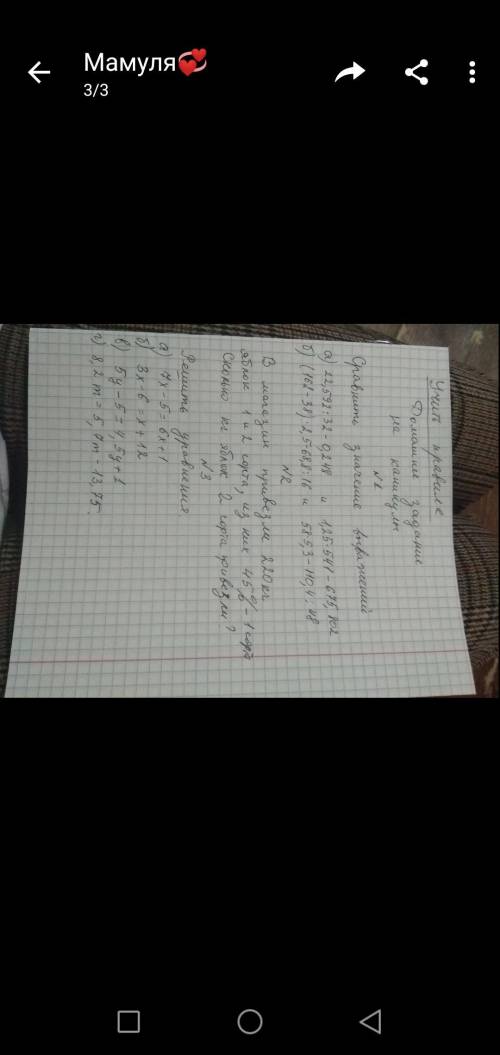 Мамуля💞
3/3
Учить правила
Домашнее задание
на каникулы
N1
Сравнить значение выражений
а) 22,592:32-0,248 и
б) (162-38)·2,5-68,8:16 и 58·5,3-110,4:48
N2
В магазин привезли 220 кг
яблок 1 и 2 сорта, из них 45% - 1 сорт
Сколько кг яблок 2 сорта привезли?
N3
Решить уравнения
а) 7х-5=6х+1
б) 3х-6=х+12
в) 5у-5=4,5у+1
г) 8,2m=5,7m-13,75.